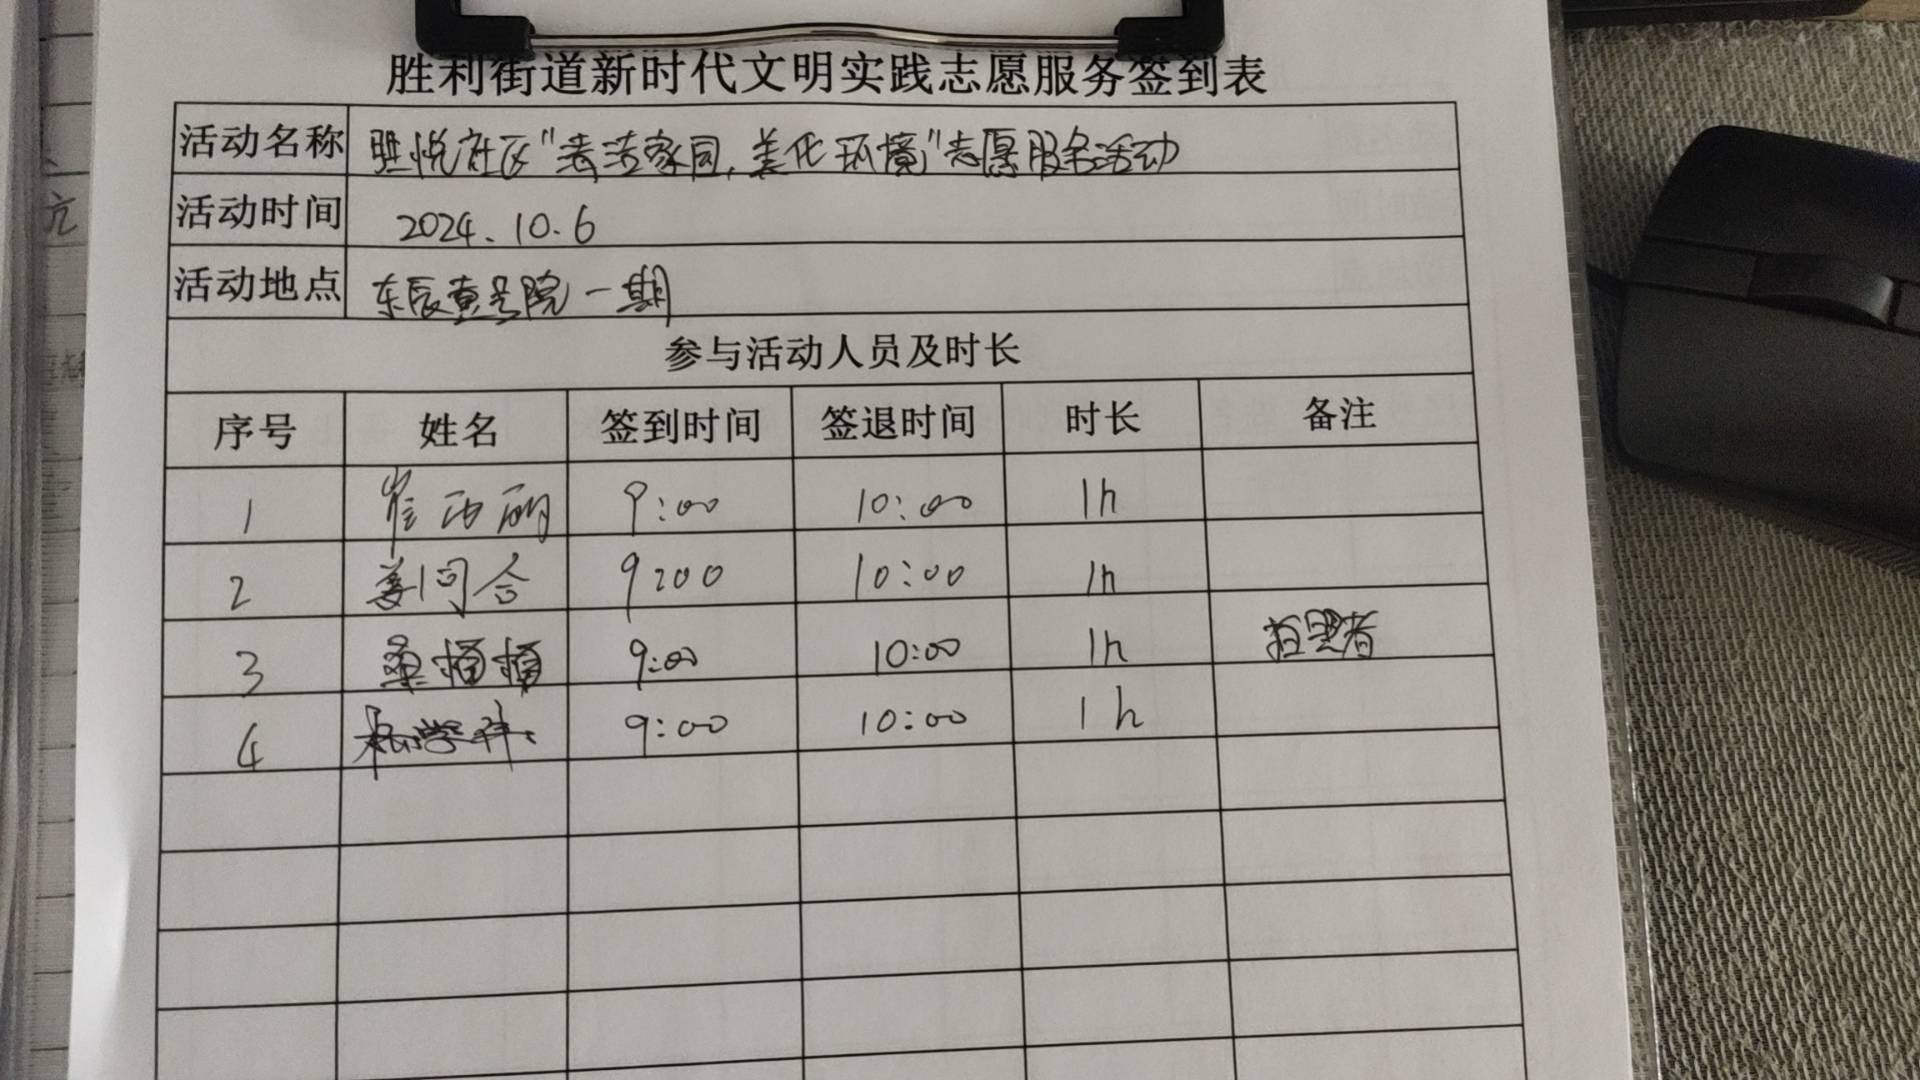 胜利街道新时代文明实践志愿服务签到表
活动名称 胜悦社区"清洁家园,美化环境"志愿服务活动
活动时间 2024.10.6
活动地点 东辰壹号院一期
参与活动人员及时长
序号 姓名 签到时间 签退时间 时长 备注
1 9:00 10:00 1h
2 姜同合 9:00 10:00 1h
3 桑楠楠 9:00 10:00 1h 管理者
4 9:00 10:00 1h